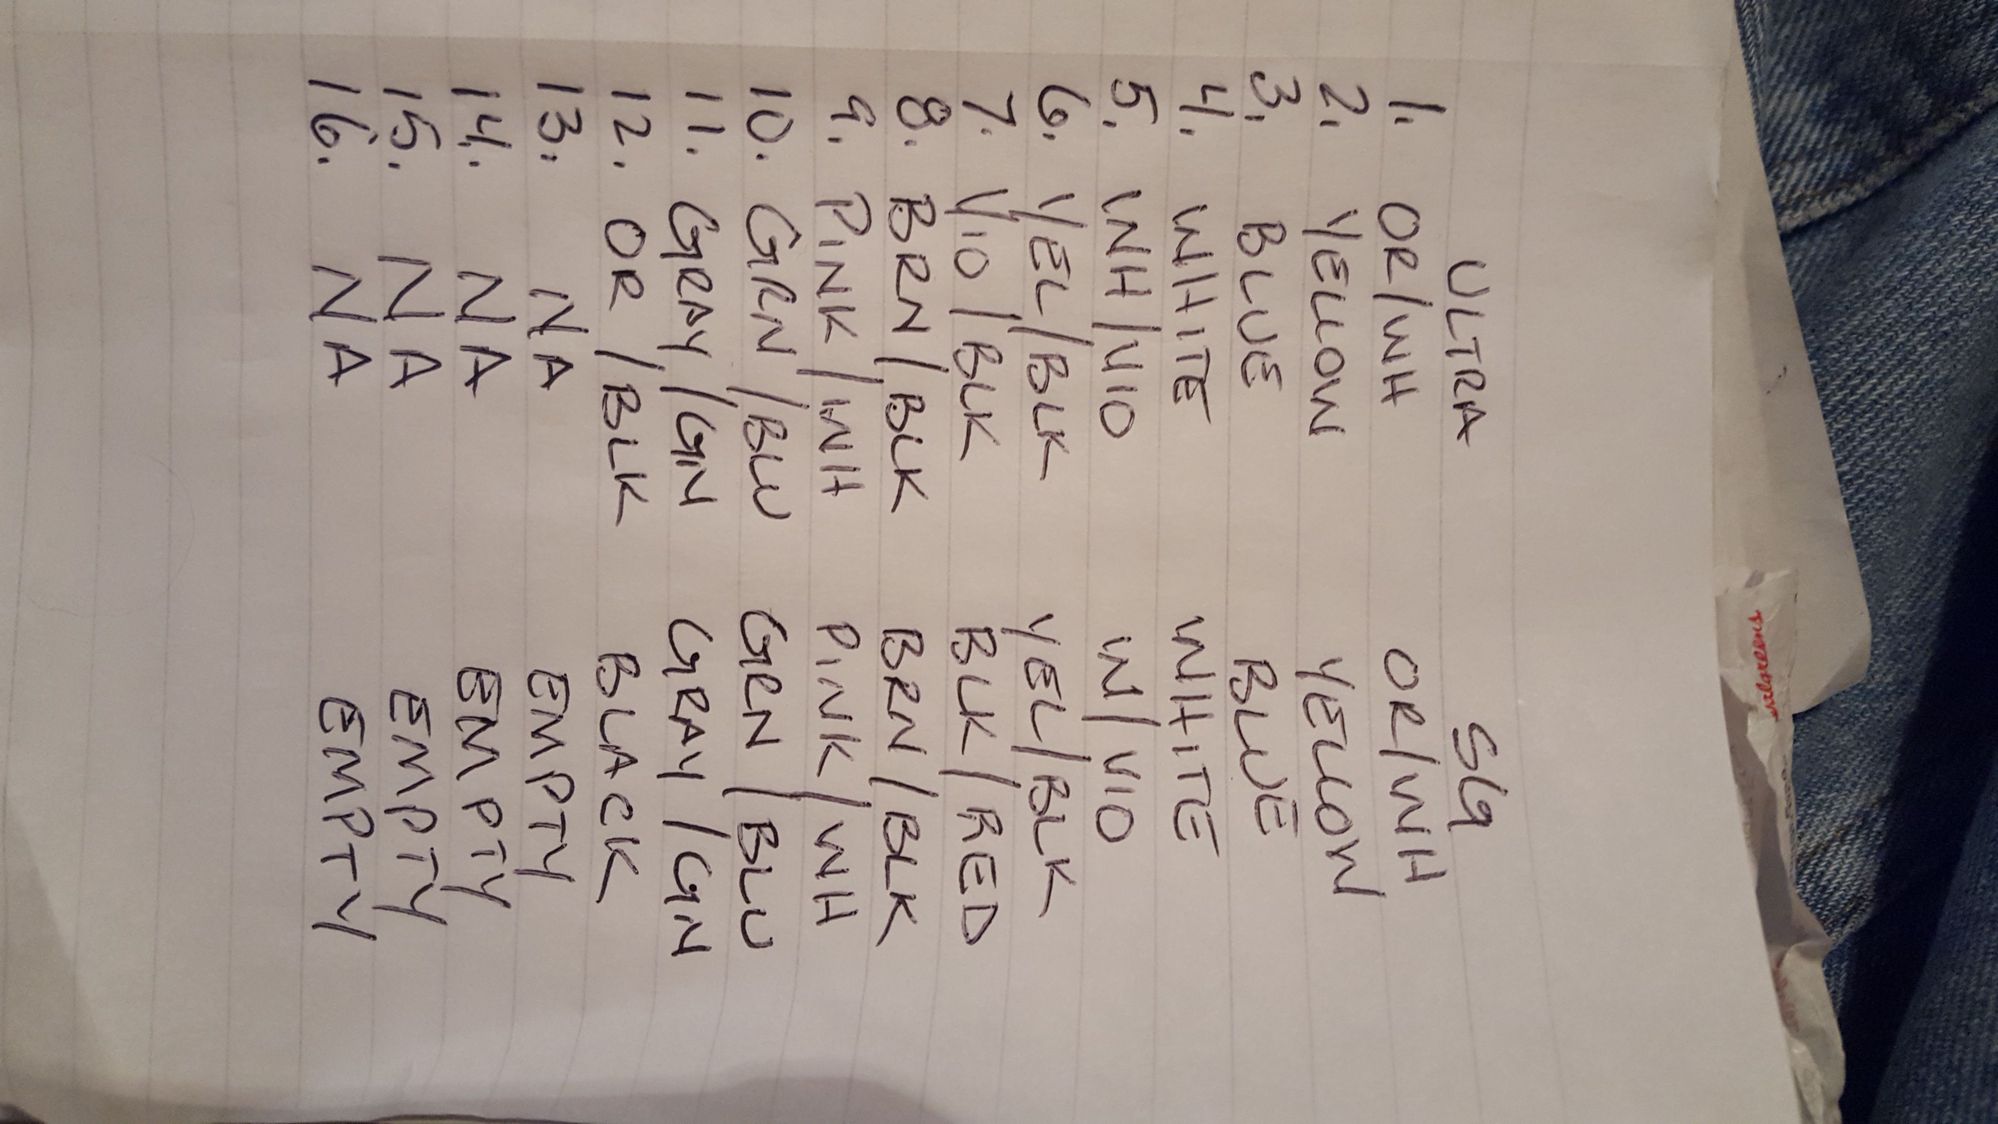 ULTRA SG
1. OR/WH OR/WH
2. YELLOW YELLOW
3. BLUE BLUE
4. WHITE WHITE
5. WH/VIO W/VIO
6. YEL/BLK YEL/BLK
7. VIO/BLK BLK/RED
8. BRN/BLK BRN/BLK
9. PINK/WH PINK/WH
10. GRN/BLU GRN/BLU
11. GRAY/GN GRAY/GN
12. OR/BLK BLACK
13. NA EMPTY
14. NA EMPTY
15. NA EMPTY
16. NA EMPTY
Walgreens